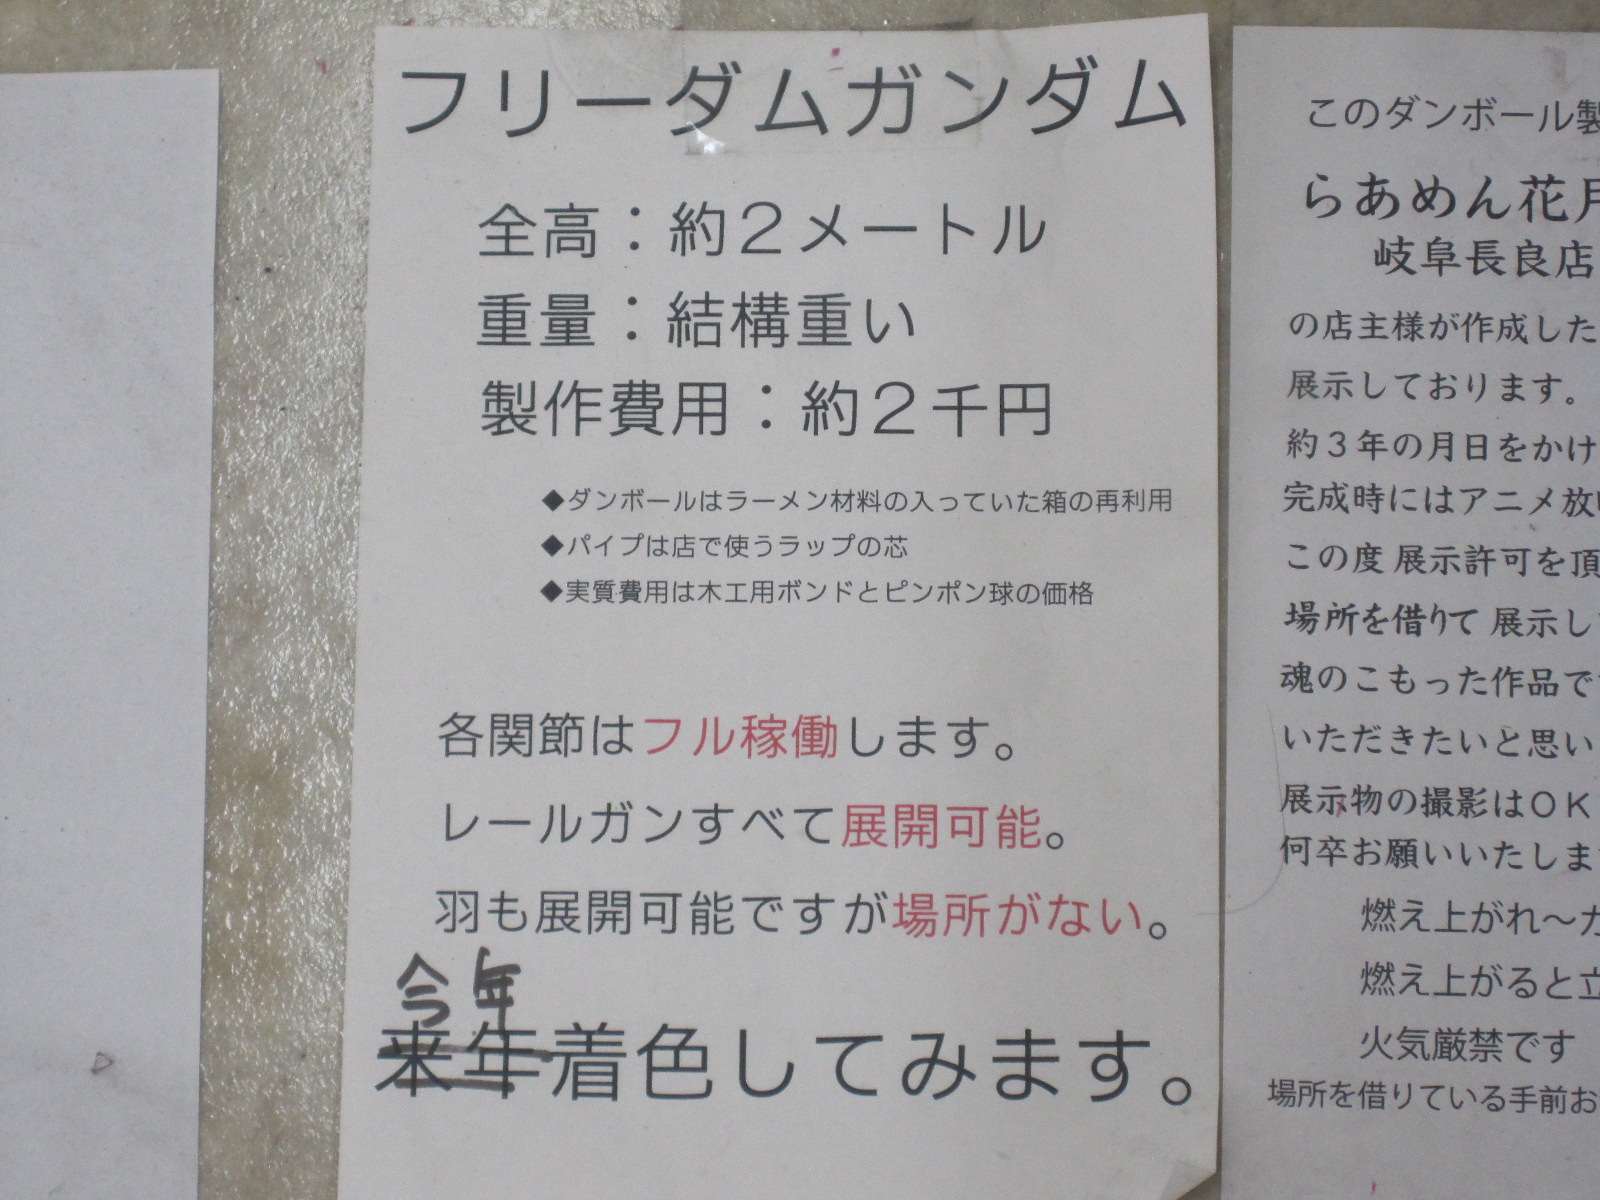 フリーダムガンダム
全高：約２メートル
重量：結構重い
製作費用：約２千円
◆ダンボールはラーメン材料の入っていた箱の再利用
◆パイプは店で使うラップの芯
◆実質費用は木工用ボンドとピンポン球の価格
各関節はフル稼働します。
レールガンすべて展開可能。
羽も展開可能ですが場所がない。
今年
来年着色してみます。
このダンボール製
らあめん花月
岐阜長良店
の店主様が作成した
展示しております。
約３年の月日をかけ
完成時にはアニメ放
この度 展示許可を頂
場所を借りて 展示し
魂のこもった作品で
いただきたいと思い
展示物の撮影はＯＫ
何卒お願いいたしま
燃え上がれ～ガ
燃え上がると立
火気厳禁です
場所を借りている手前お